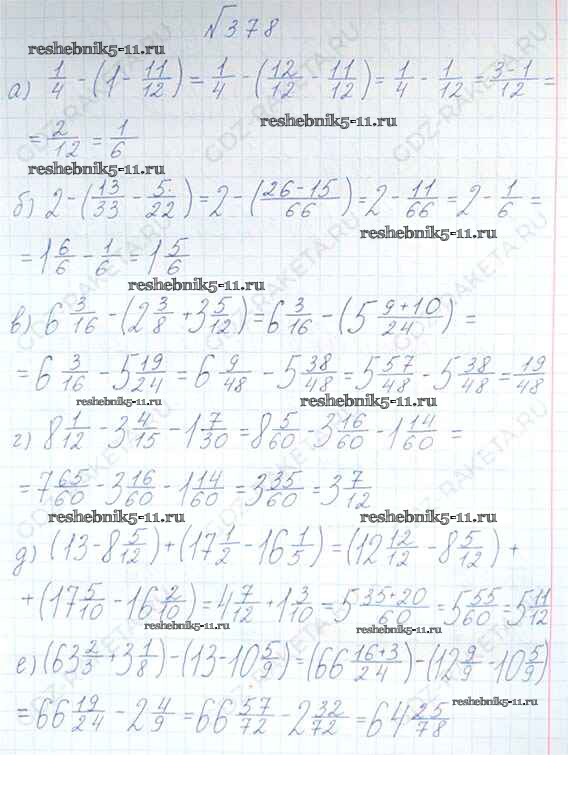 √378
reshebnik5-11.ru
а) 1/4 - (1 - 11/12) = 1/4 - (12/12 - 11/12) = 1/4 - 1/12 = 3-1/12 =
reshebnik5-11.ru
= 2/12 = 1/6
reshebnik5-11.ru
б) 2 - (13/33 - 5/22) = 2 - (26-15/66) = 2 - 11/66 = 2 - 1/6 =
reshebnik5-11.ru
= 1 6/6 - 1/6 = 1 5/6
reshebnik5-11.ru
в) 6 3/16 - (2 3/8 + 3 5/12) = 6 3/16 - (5 9+10/24) =
= 6 3/16 - 5 19/24 = 6 9/48 - 5 38/48 = 5 57/48 - 5 38/48 = 19/48
reshebnik5-11.ru reshebnik5-11.ru
г) 8 1/12 - 3 4/15 - 1 7/30 = 8 5/60 - 3 16/60 - 1 14/60 =
= 7 65/60 - 3 16/60 - 1 14/60 = 3 35/60 = 3 7/12
reshebnik5-11.ru reshebnik5-11.ru
д) (13 - 8 5/12) + (17 1/2 - 16 1/5) = (12 12/12 - 8 5/12) +
+ (17 5/10 - 16 2/10) = 4 7/12 + 1 3/10 = 5 35+20/60 = 5 55/60 = 5 11/12
reshebnik5-11.ru reshebnik5-11.ru
е) (63 2/3 + 3 1/8) - (13 - 10 5/9) = (66 16+3/24) - (12 9/9 - 10 5/9)
reshebnik5-11.ru
= 66 19/24 - 2 4/9 = 66 57/72 - 2 32/72 = 64 25/78
GDZ-RAKETA.RU